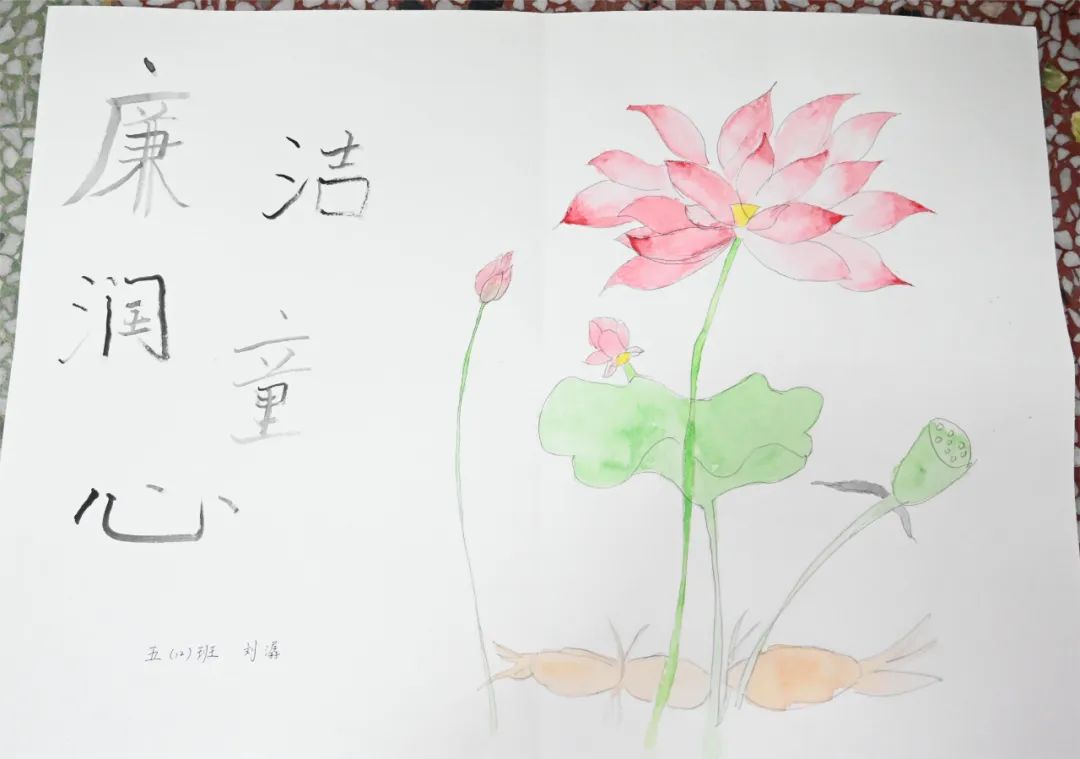 廉洁
润童
心
五(12)班 刘潺